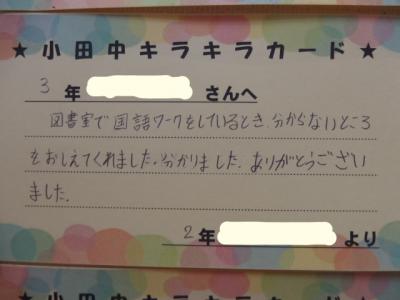 ★小田中キラキラカード★
3年 さんへ
図書室で国語ワークをしているとき、分からないところ
をおしえてくれました。分かりました。ありがとうござい
ました。
2年 より